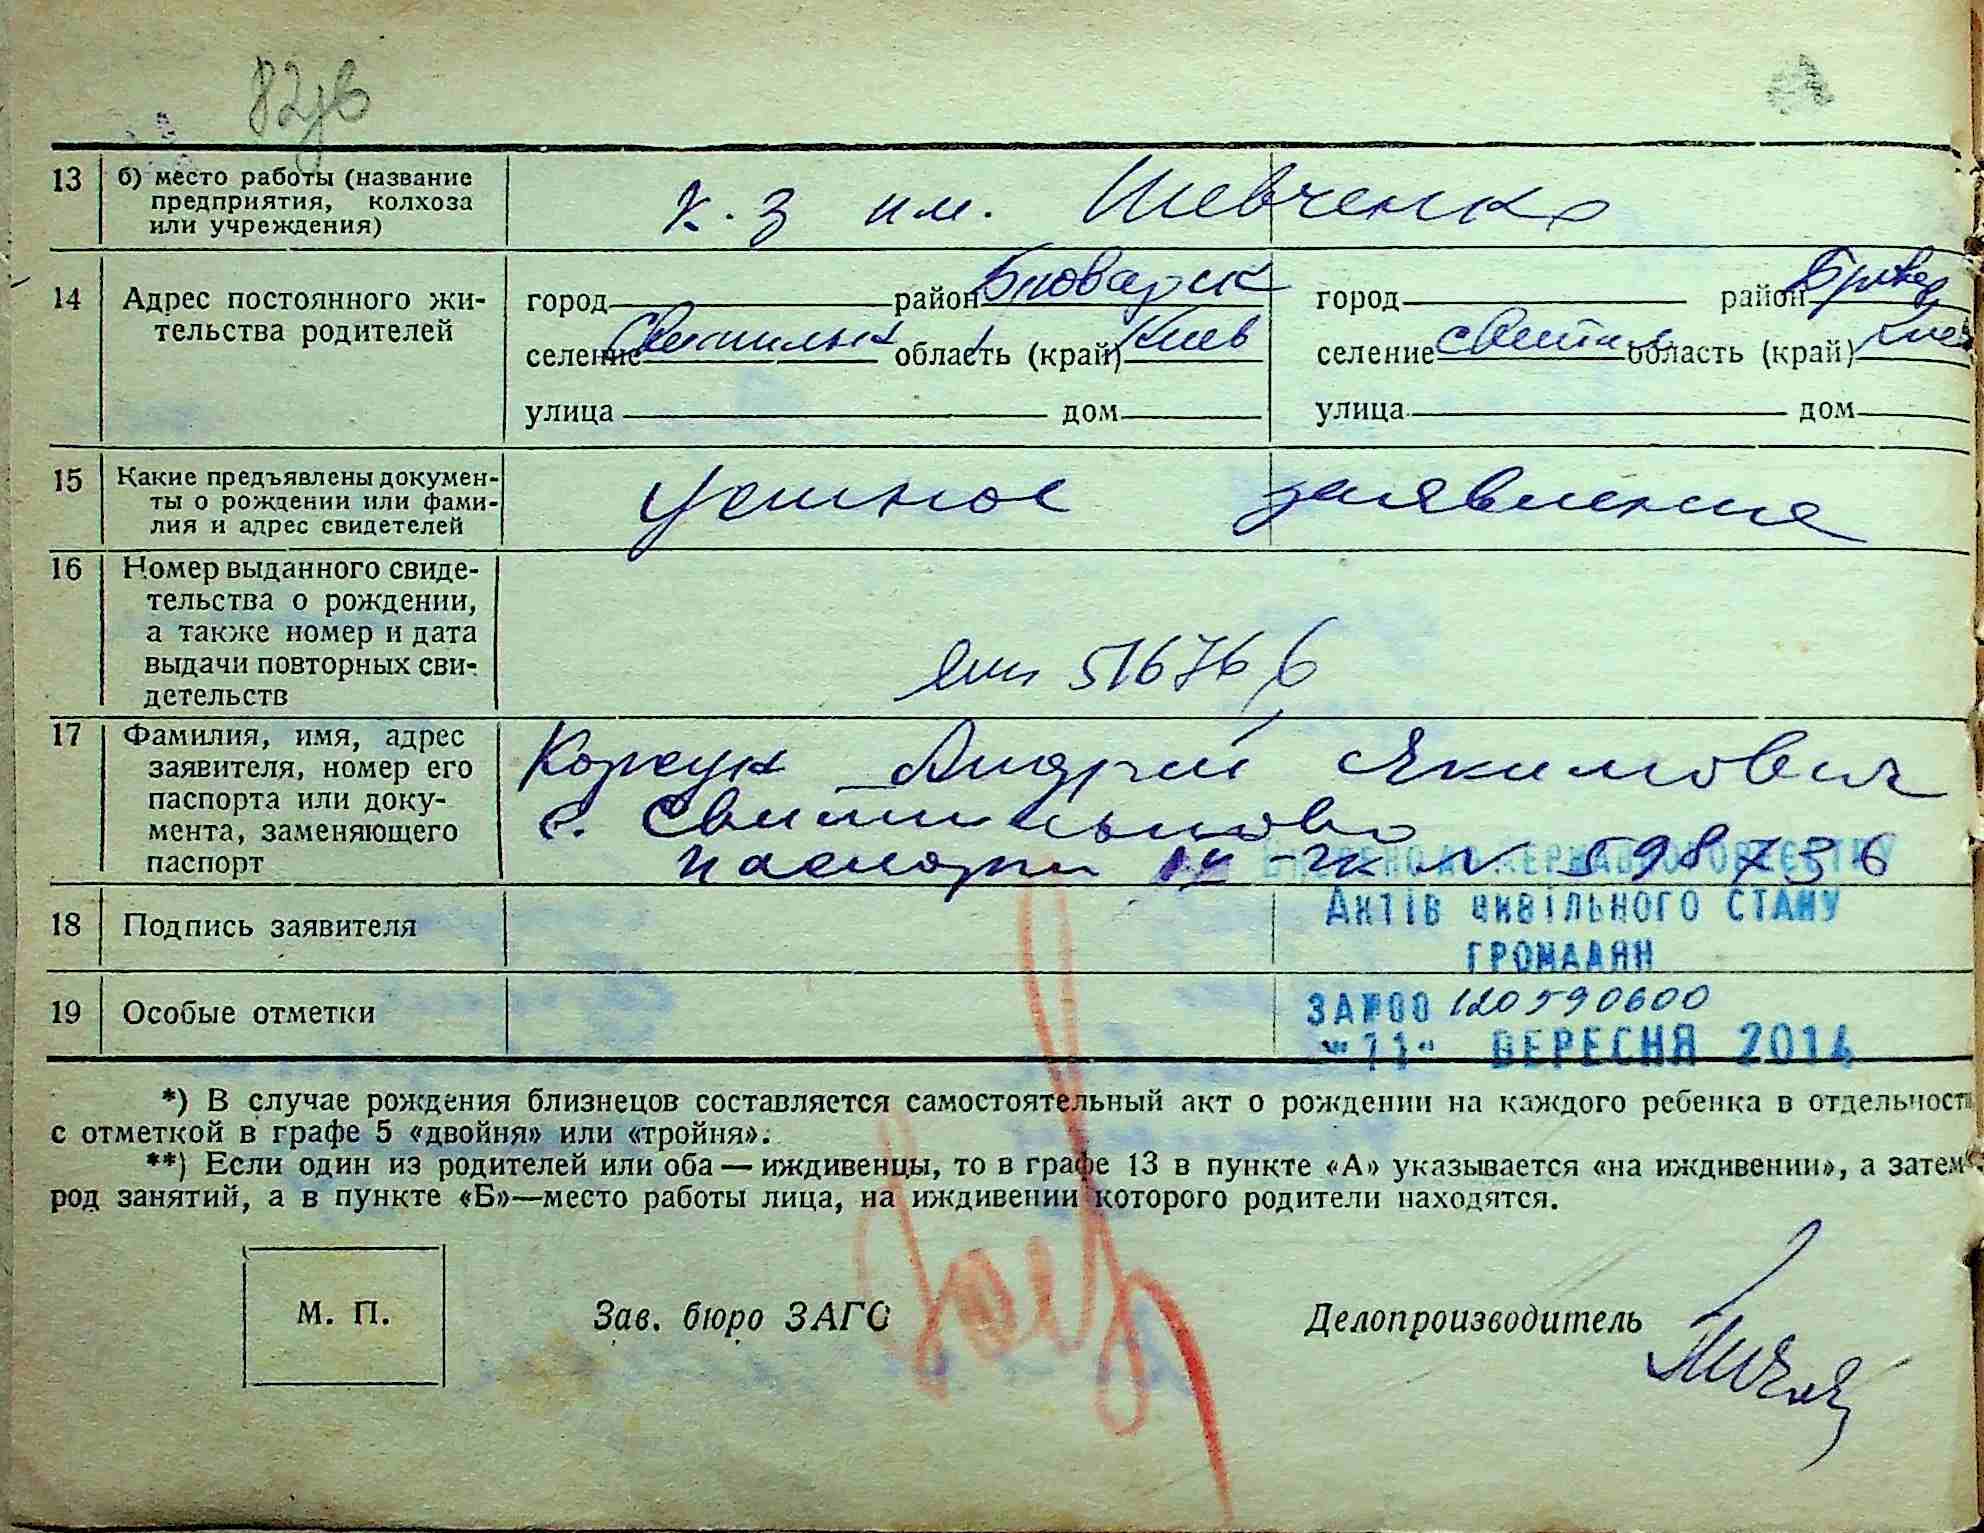 13 б) место работы (название
предприятия, колхоза
или учреждения)
к-з им. Шевченко
14 Адрес постоянного жи-
тельства родителей
город район Броварск
селение Свитильн область (край) Киев
улица дом
город район Бровар
селение Свитил область (край) Киев
улица дом
15 Какие предъявлены докумен-
ты о рождении или фами-
лия и адрес свидетелей
устное заявление
16 Номер выданного свиде-
тельства о рождении,
а также номер и дата
выдачи повторных сви-
детельств
516766
17 Фамилия, имя, адрес
заявителя, номер его
паспорта или доку-
мента, заменяющего
паспорт
Андрей Якимович
с. Свитильново
паспорт N 598736
18 Подпись заявителя
19 Особые отметки
ВНЕСЕНО ДО ДЕРЖАВНОГО РЕЄСТРУ
АКТІВ ЦИВІЛЬНОГО СТАНУ
ГРОМАДЯН
ЗА №00 120590600
"11" ВЕРЕСНЯ 2014
*) В случае рождения близнецов составляется самостоятельный акт о рождении на каждого ребенка в отдельности
с отметкой в графе 5 «двойня» или «тройня».
**) Если один из родителей или оба — иждивенцы, то в графе 13 в пункте «А» указывается «на иждивении», а затем
род занятий, а в пункте «Б»—место работы лица, на иждивении которого родители находятся.
М. П.
Зав. бюро ЗАГС
Делопроизводитель